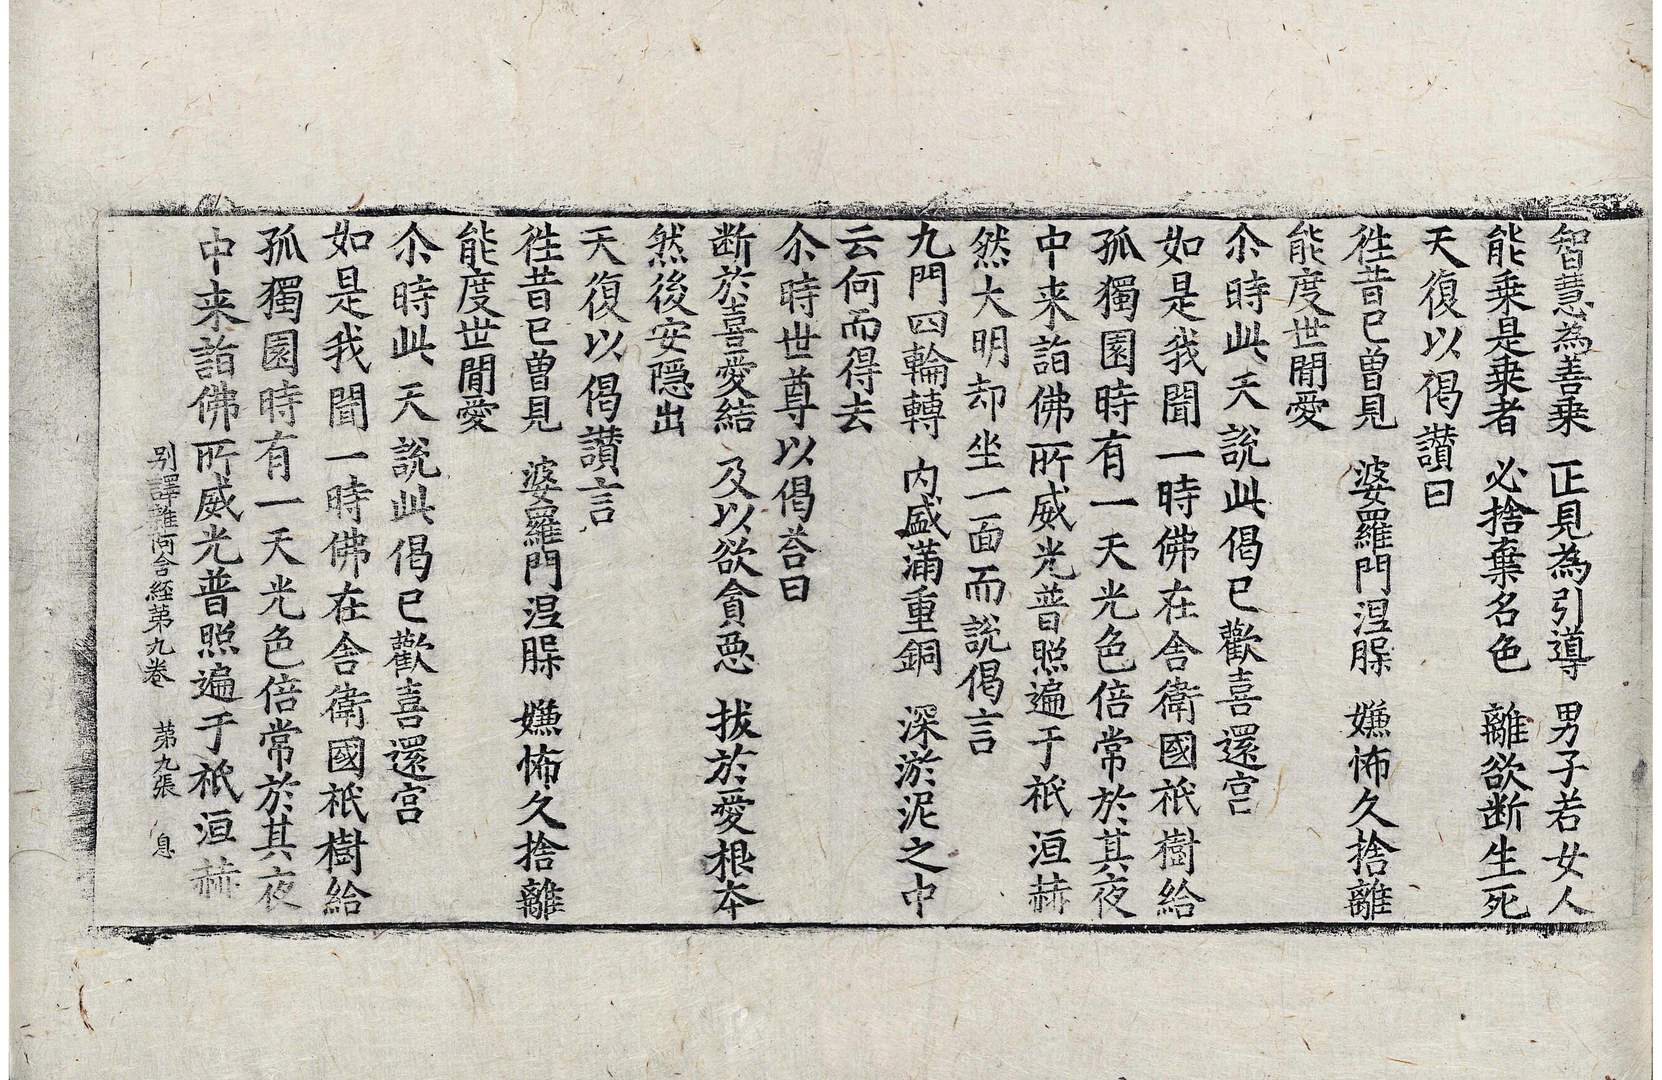 智慧為善乗　正見為引導　男子若女人
能乗是乗者　必捨棄名色　離欲断生死
天復以偈讃曰
徃昔已曾見　婆羅門涅槃　嫌怖久捨離
能度世間愛
尒時此天說此偈已歡喜還宫
如是我聞一時佛在舎衛國祇樹給
孤獨園時有一天光色倍常於其夜
中来詣佛所威光普照遍于祇洹赫
然大明却坐一面而說偈言
九門四輪轉　内盛滿重銅　深淤泥之中
云何而得去
尒時世尊以偈荅曰
断於喜愛結　及以欲貪惡　拔於愛根本
然後安隱出
天復以偈讃言
徃昔已曾見　婆羅門涅槃　嫌怖久捨離
能度世間愛
尒時此天說此偈已歡喜還宫
如是我聞一時佛在舎衛國祇樹給
孤獨園時有一天光色倍常於其夜
中来詣佛所威光普照遍于祇洹赫
别譯雜阿含経苐九卷　苐九張　息